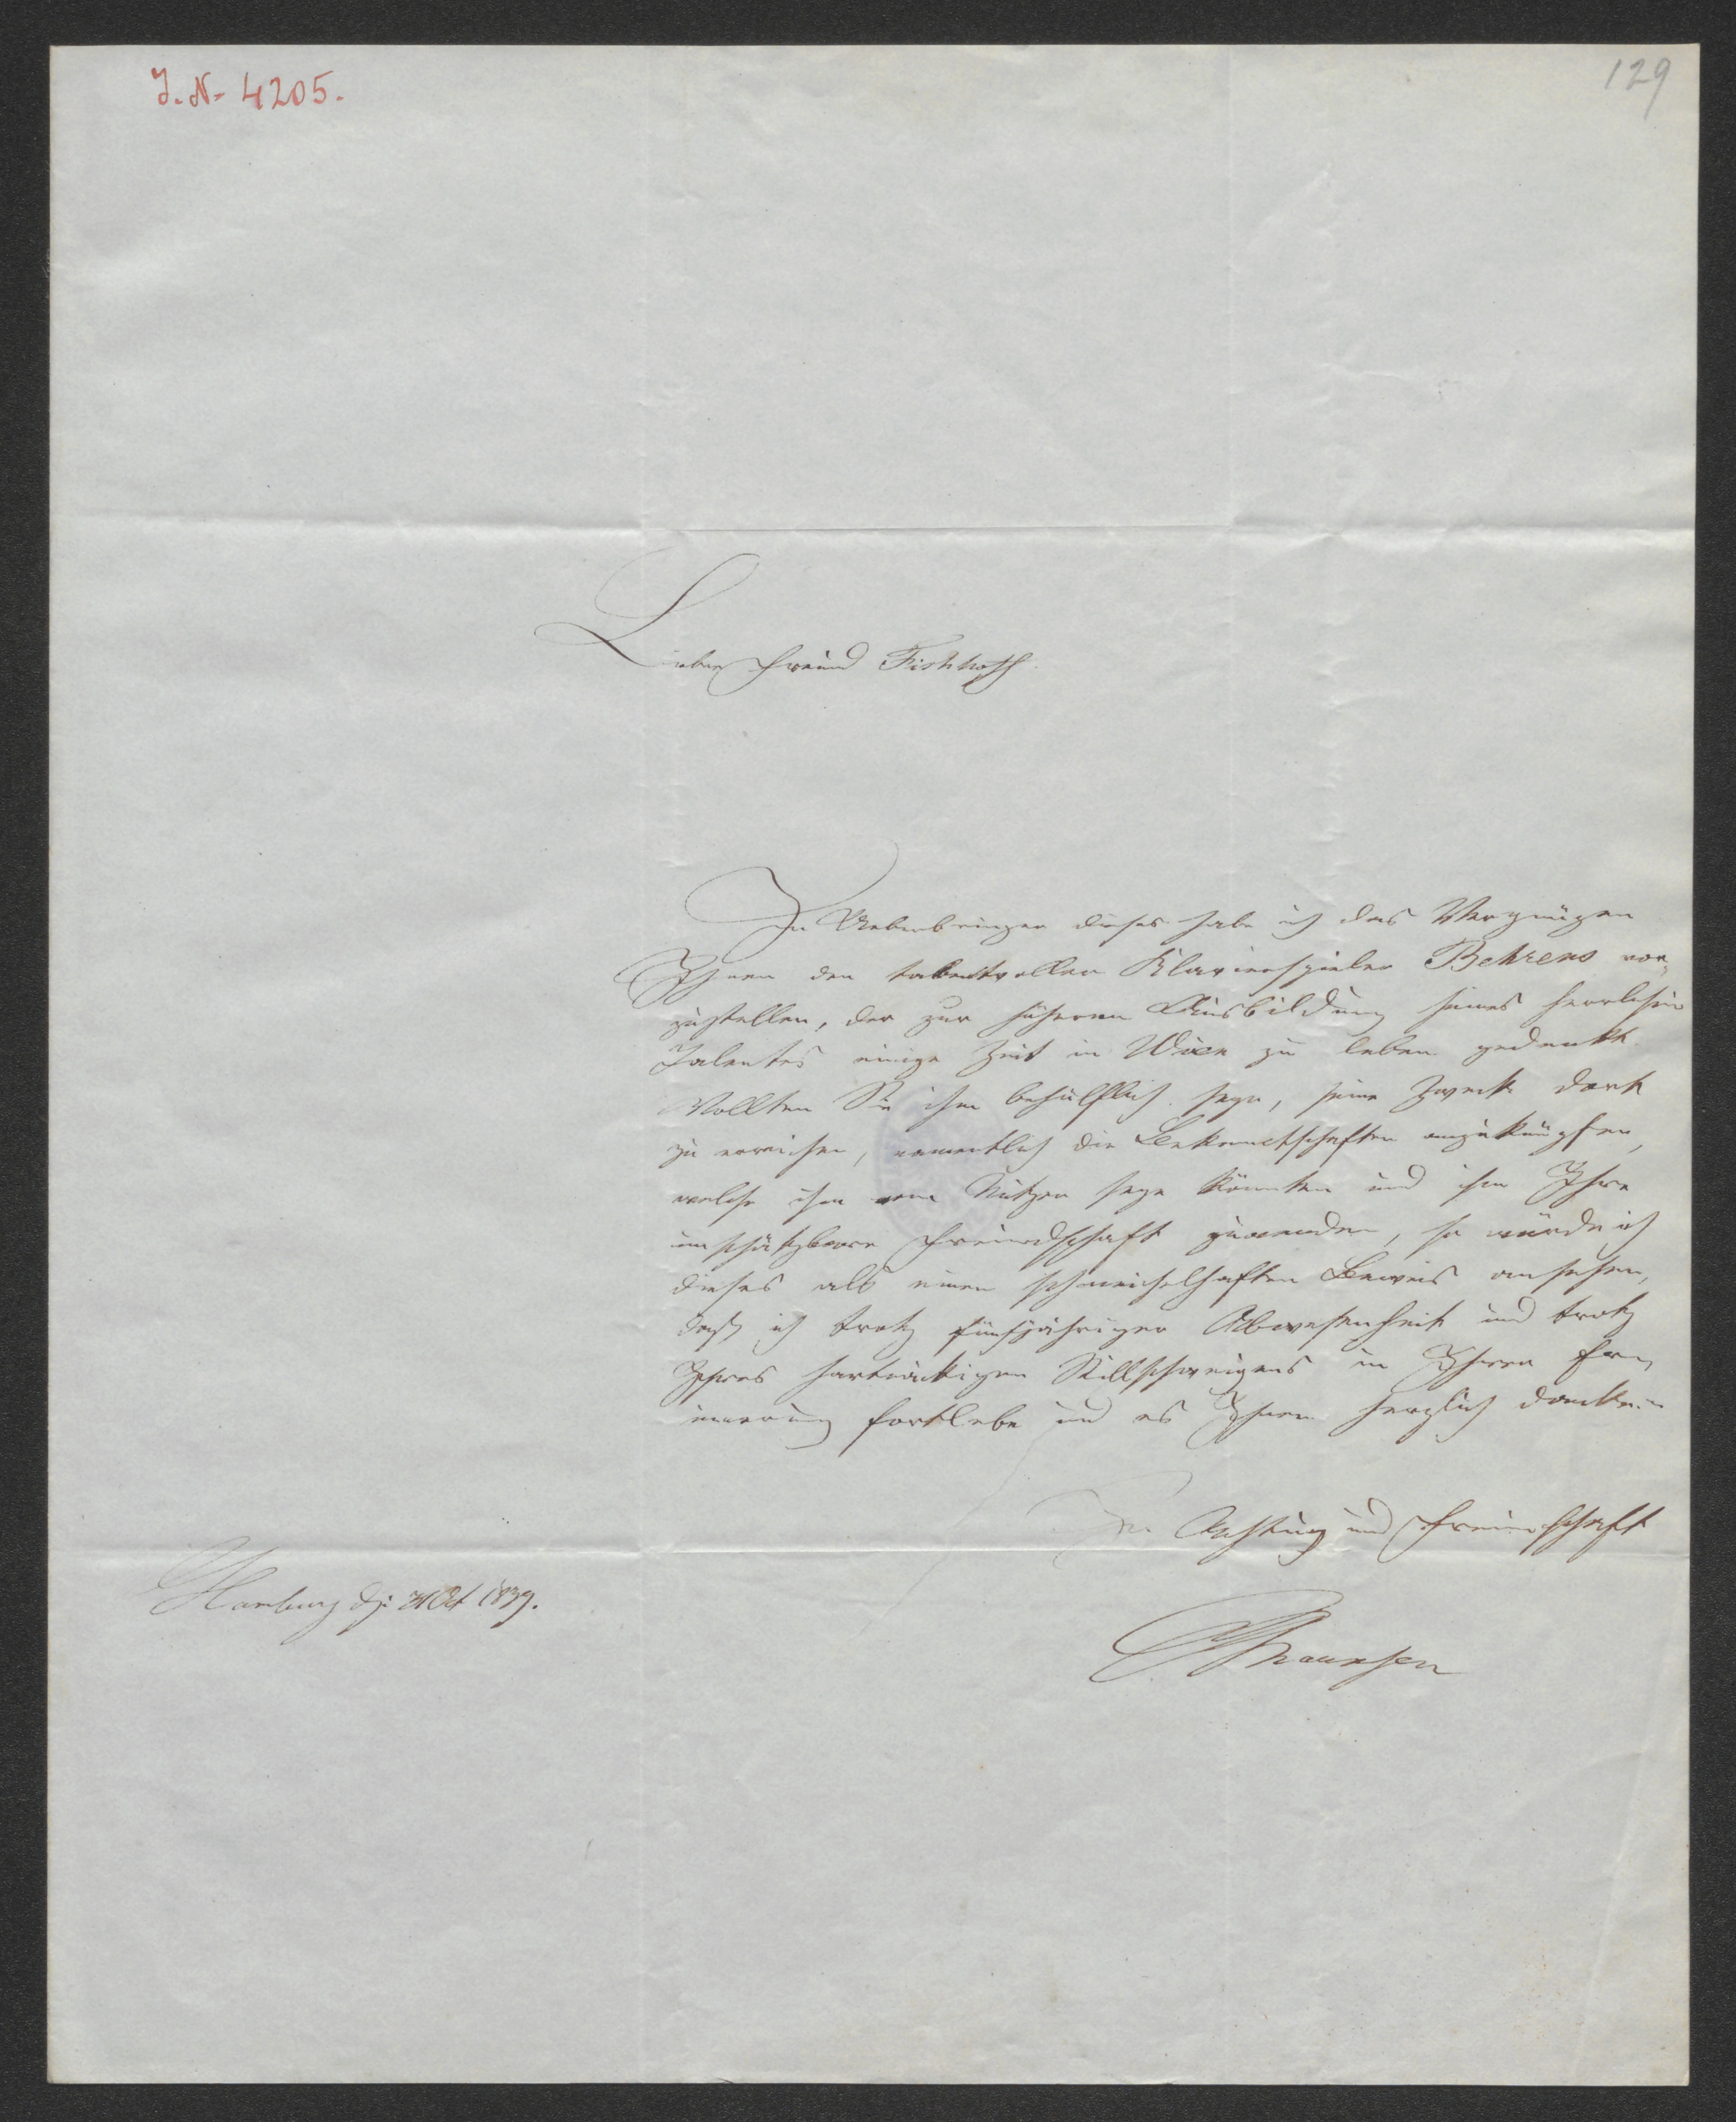 J. N. 4205.
129
Lieber Freund Fischhoff
Im Ueberbringer dieses habe ich das Vergnügen
Ihnen den talentvollen Klavierspieler Behrens vor-
zustellen, der zur höheren Ausbildung seines herrlichen
Talentes einige Zeit in Wien zu leben gedenkt.
Wollten Sie ihm behülflich seyn, seine Zwecke dort
zu erreichen, namentlich die Bekanntschaften anzuknüpfen,
welche ihm von Nutzen seyn könnten und ihm Ihre
unschätzbare Freundschaft zuwenden, so würde ich
dieses als einen schmeichelhaften Beweis ansehen,
daß ich trotz fünfjähriger Abwesenheit und trotz
Ihres hartnäckigen Stillschweigens in Ihrer Erin-
nerung fortlebe und es Ihnen herzlich danken.
In Achtung und Freundschaft
Hamburg d. 31 Oct 1839.
Marxsen